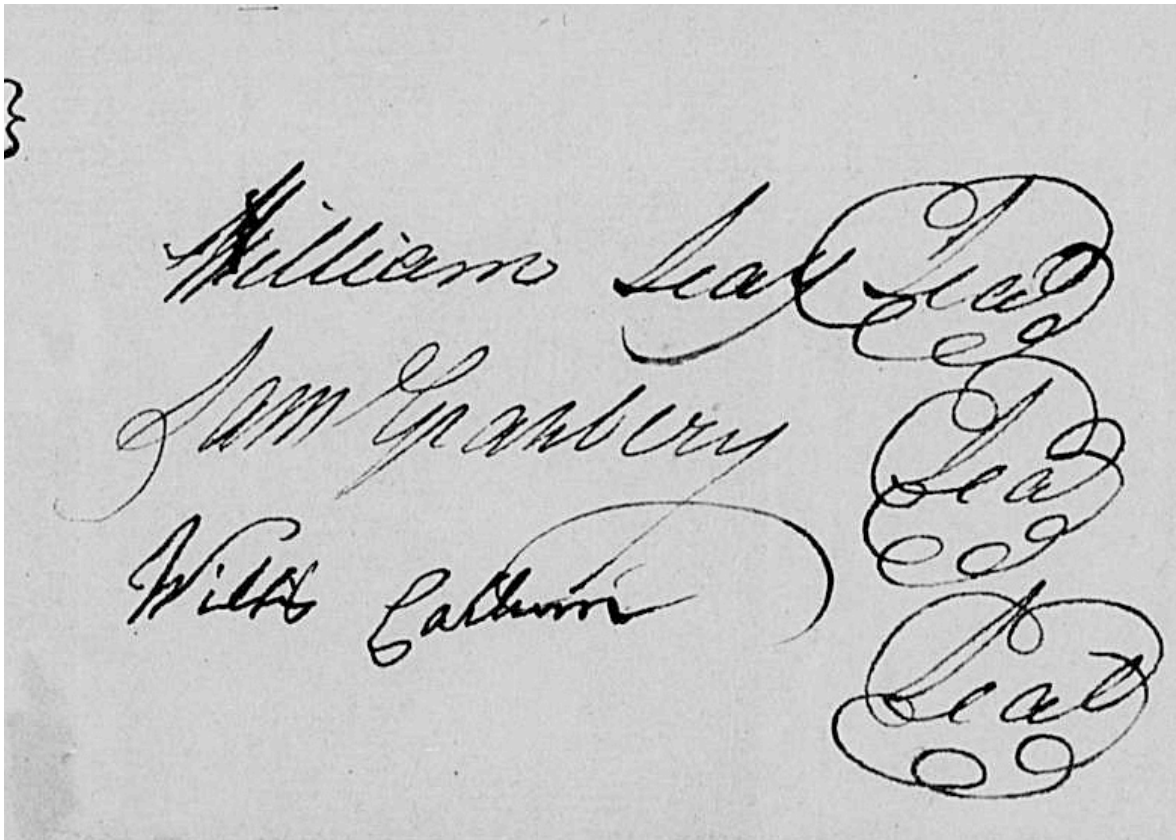 William Seay Seal
Sam Granbery Seal
Willis Calhoun Seal